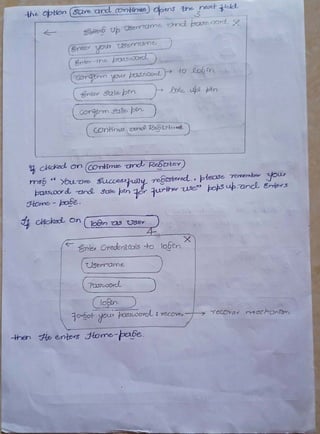 the option Save and continue opens the next field
← Setup Username and password X
Enter your Username
Enter the password
Confirm your password → to login
Enter safe pin →
Confirm safe pin
Continue and Register
If clicked on Continue and Register
msg " You are successfully registered, please remember your
password and safe pin for further use" pops up and Enters
Home-page.
If clicked on login as user
← X
Enter Credentials to login
Username
Password
login
Forgot your password & recover → recover mechanism
then He enters Home-page